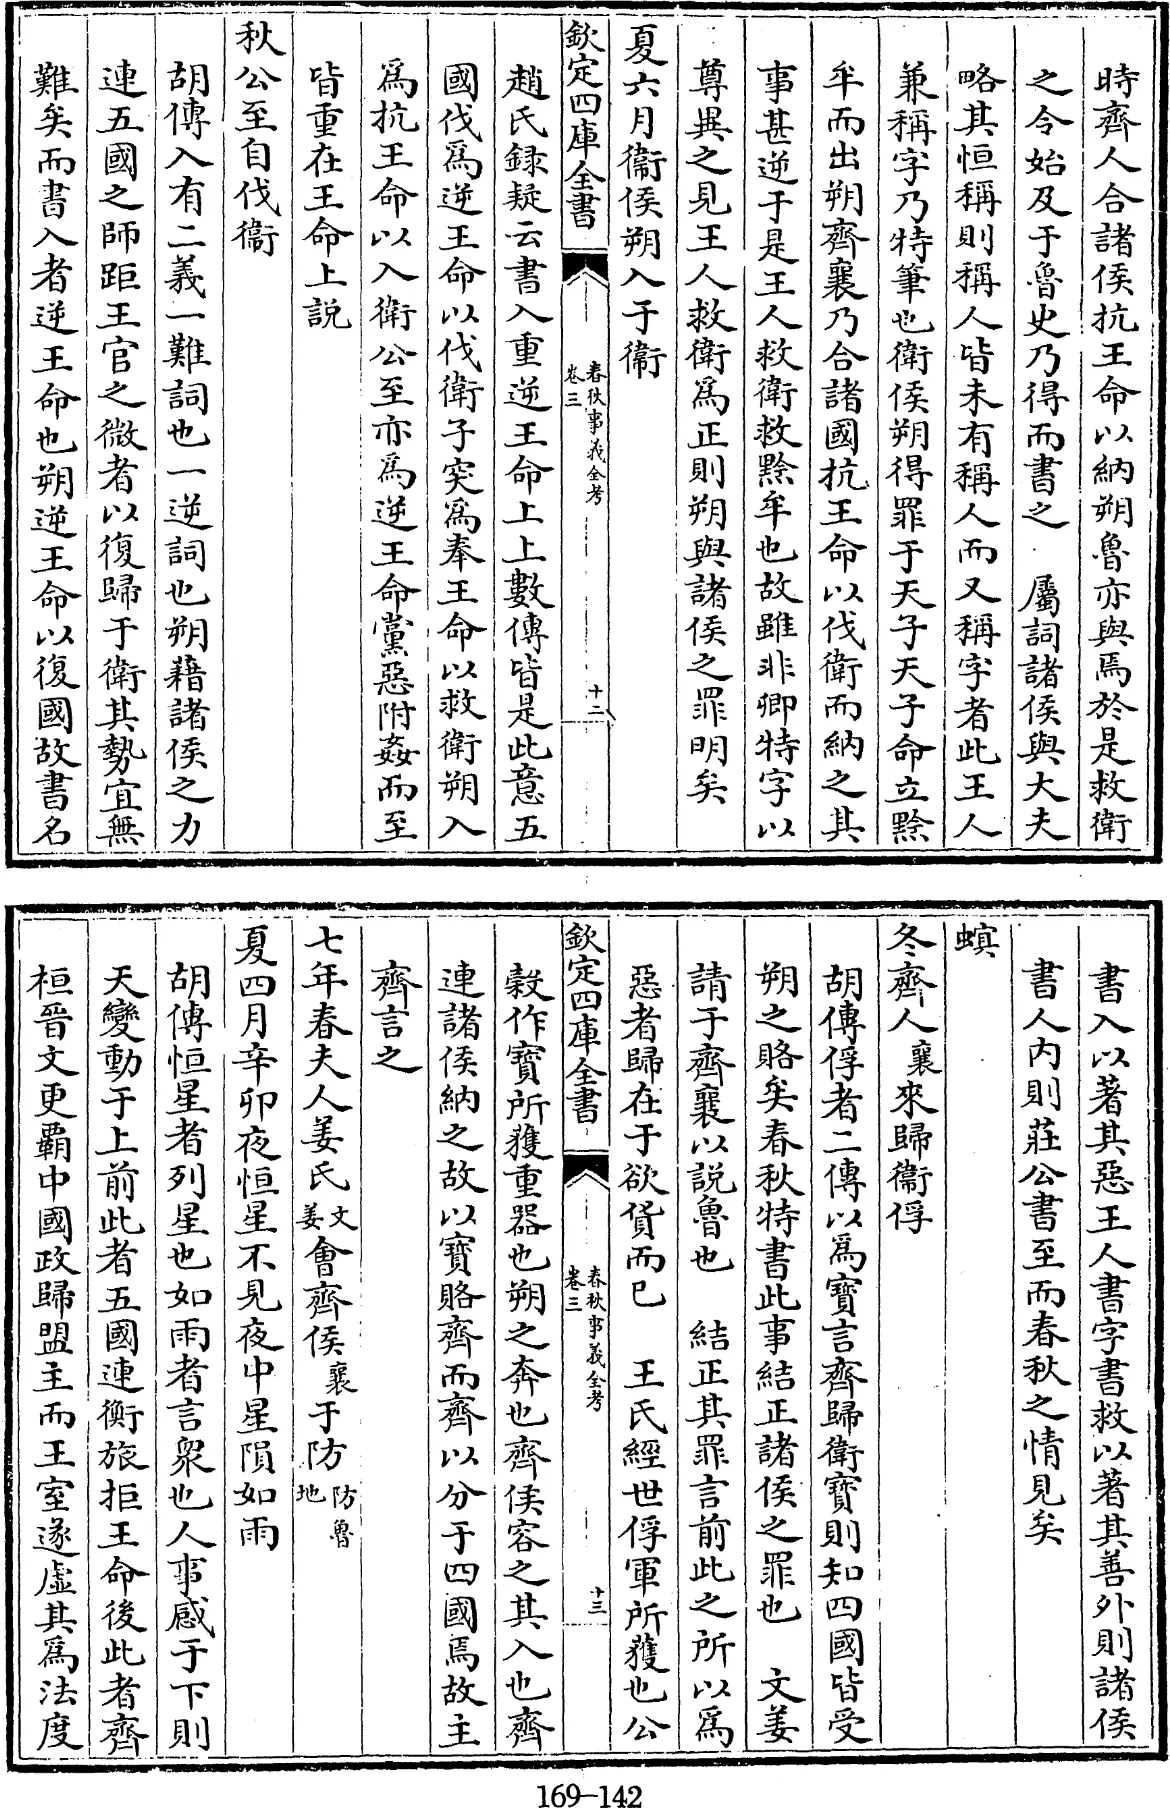 時齊人合諸侯抗王命以納朔魯亦與焉於是救衛
之令始及于魯史乃得而書之　屬詞諸侯與大夫
略其恒稱則稱人皆未有稱人而又稱字者此王人
兼稱字乃特筆也衛侯朔得罪于天子天子命立黔
牟而出朔齊襄乃合諸國抗王命以伐衛而納之其
事甚逆于是王人救衛救黔牟也故雖非卿特字以
尊異之見王人救衛爲正則朔與諸侯之罪明矣
夏六月衛侯朔入于衛
欽定四庫全書
春秋事義全考
卷三
十二
趙氏録疑云書入重逆王命上上數傳皆是此意五
國伐爲逆王命以伐衛子突爲奉王命以救衛朔入
爲抗王命以入衛公至亦爲逆王命黨惡附姦而至
皆重在王命上説
秋公至自伐衛
胡傳入有二義一難詞也一逆詞也朔藉諸侯之力
連五國之師距王官之微者以復歸于衛其勢宜無
難矣而書入者逆王命也朔逆王命以復國故書名
書入以著其惡王人書字書救以著其善外則諸侯
書人内則莊公書至而春秋之情見矣
螟
冬齊人襄來歸衛俘
胡傳俘者二傳以爲寶言齊歸衛寶則知四國皆受
朔之賂矣春秋特書此事結正諸侯之罪也　文姜
請于齊襄以説魯也　結正其罪言前此之所以爲
惡者歸在于欲貨而已　王氏經世俘軍所獲也公
欽定四庫全書
春秋事義全考
卷三
十三
穀作寶所獲重器也朔之奔也齊侯容之其入也齊
連諸侯納之故以寶賂齊而齊以分于四國焉故主
齊言之
七年春夫人姜氏文姜會齊侯襄于防防魯地
夏四月辛卯夜恒星不見夜中星隕如雨
胡傳恒星者列星也如雨者言衆也人事感于下則
天變動于上前此者五國連衡旅拒王命後此者齊
桓晉文更霸中國政歸盟主而王室遂虛其爲法度
169-142